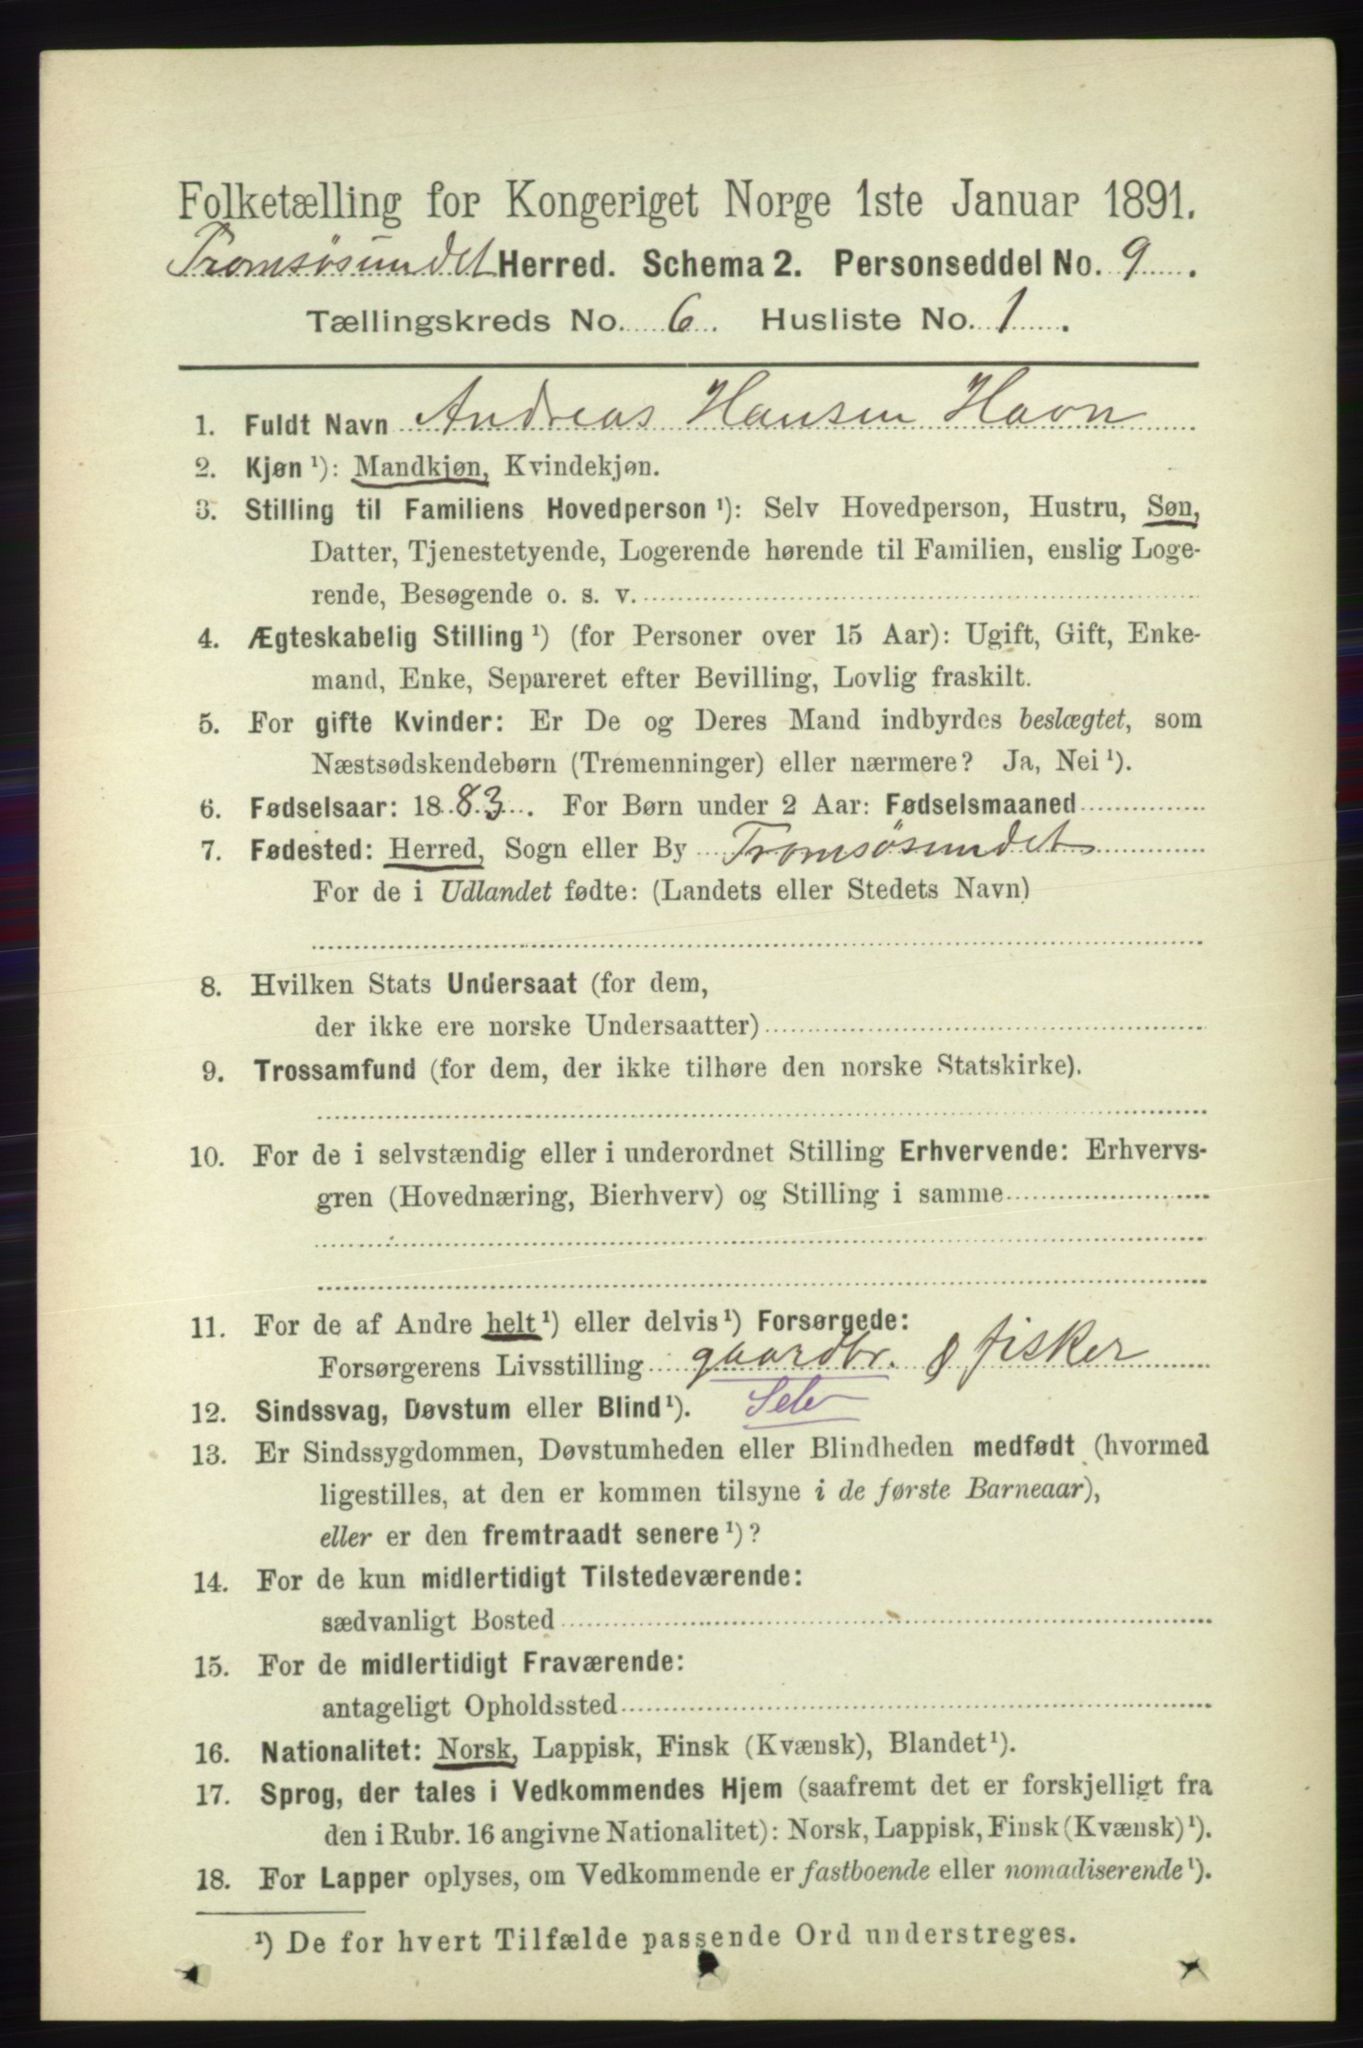 Folketælling for Kongeriget Norge 1ste Januar 1891.
Tromsøsundet Herred. Schema 2. Personseddel No. 9.
Tællingskreds No. 6. Husliste No. 1.
1. Fuldt Navn Andreas Hansen Havn
2. Kjøn ¹): Mandkjøn, Kvindekjøn.
3. Stilling til Familiens Hovedperson ¹): Selv Hovedperson, Hustru, Søn,
Datter, Tjenestetyende, Logerende hørende til Familien, enslig Loge-
rende, Besøgende o. s. v.
4. Ægteskabelig Stilling ¹) (for Personer over 15 Aar): Ugift, Gift, Enke-
mand, Enke, Separeret efter Bevilling, Lovlig fraskilt.
5. For gifte Kvinder: Er De og Deres Mand indbyrdes beslægtet, som
Næstsødskendebørn (Tremenninger) eller nærmere? Ja, Nei ¹).
6. Fødselsaar: 1883. For Børn under 2 Aar: Fødselsmaaned
7. Fødested: Herred, Sogn eller By Tromsøsundet
For de i Udlandet fødte: (Landets eller Stedets Navn)
8. Hvilken Stats Undersaat (for dem,
der ikke ere norske Undersaatter)
9. Trossamfund (for dem, der ikke tilhøre den norske Statskirke).
10. For de i selvstændig eller i underordnet Stilling Erhvervende: Erhvervs-
gren (Hovednæring, Bierhverv) og Stilling i samme
11. For de af Andre helt ¹) eller delvis ¹) Forsørgede:
Forsørgerens Livsstilling gaardbr. & fisker
12. Sindssvag, Døvstum eller Blind ¹). Selv
13. Er Sindssygdommen, Døvstumheden eller Blindheden medfødt (hvormed
ligestilles, at den er kommen tilsyne i de første Barneaar),
eller er den fremtraadt senere ¹)?
14. For de kun midlertidigt Tilstedeværende:
sædvanligt Bosted
15. For de midlertidigt Fraværende:
antageligt Opholdssted
16. Nationalitet: Norsk, Lappisk, Finsk (Kvænsk), Blandet ¹).
17. Sprog, der tales i Vedkommendes Hjem (saafremt det er forskjelligt fra
den i Rubr. 16 angivne Nationalitet): Norsk, Lappisk, Finsk (Kvænsk) ¹).
18. For Lapper oplyses, om Vedkommende er fastboende eller nomadiserende ¹).
¹) De for hvert Tilfælde passende Ord understreges.